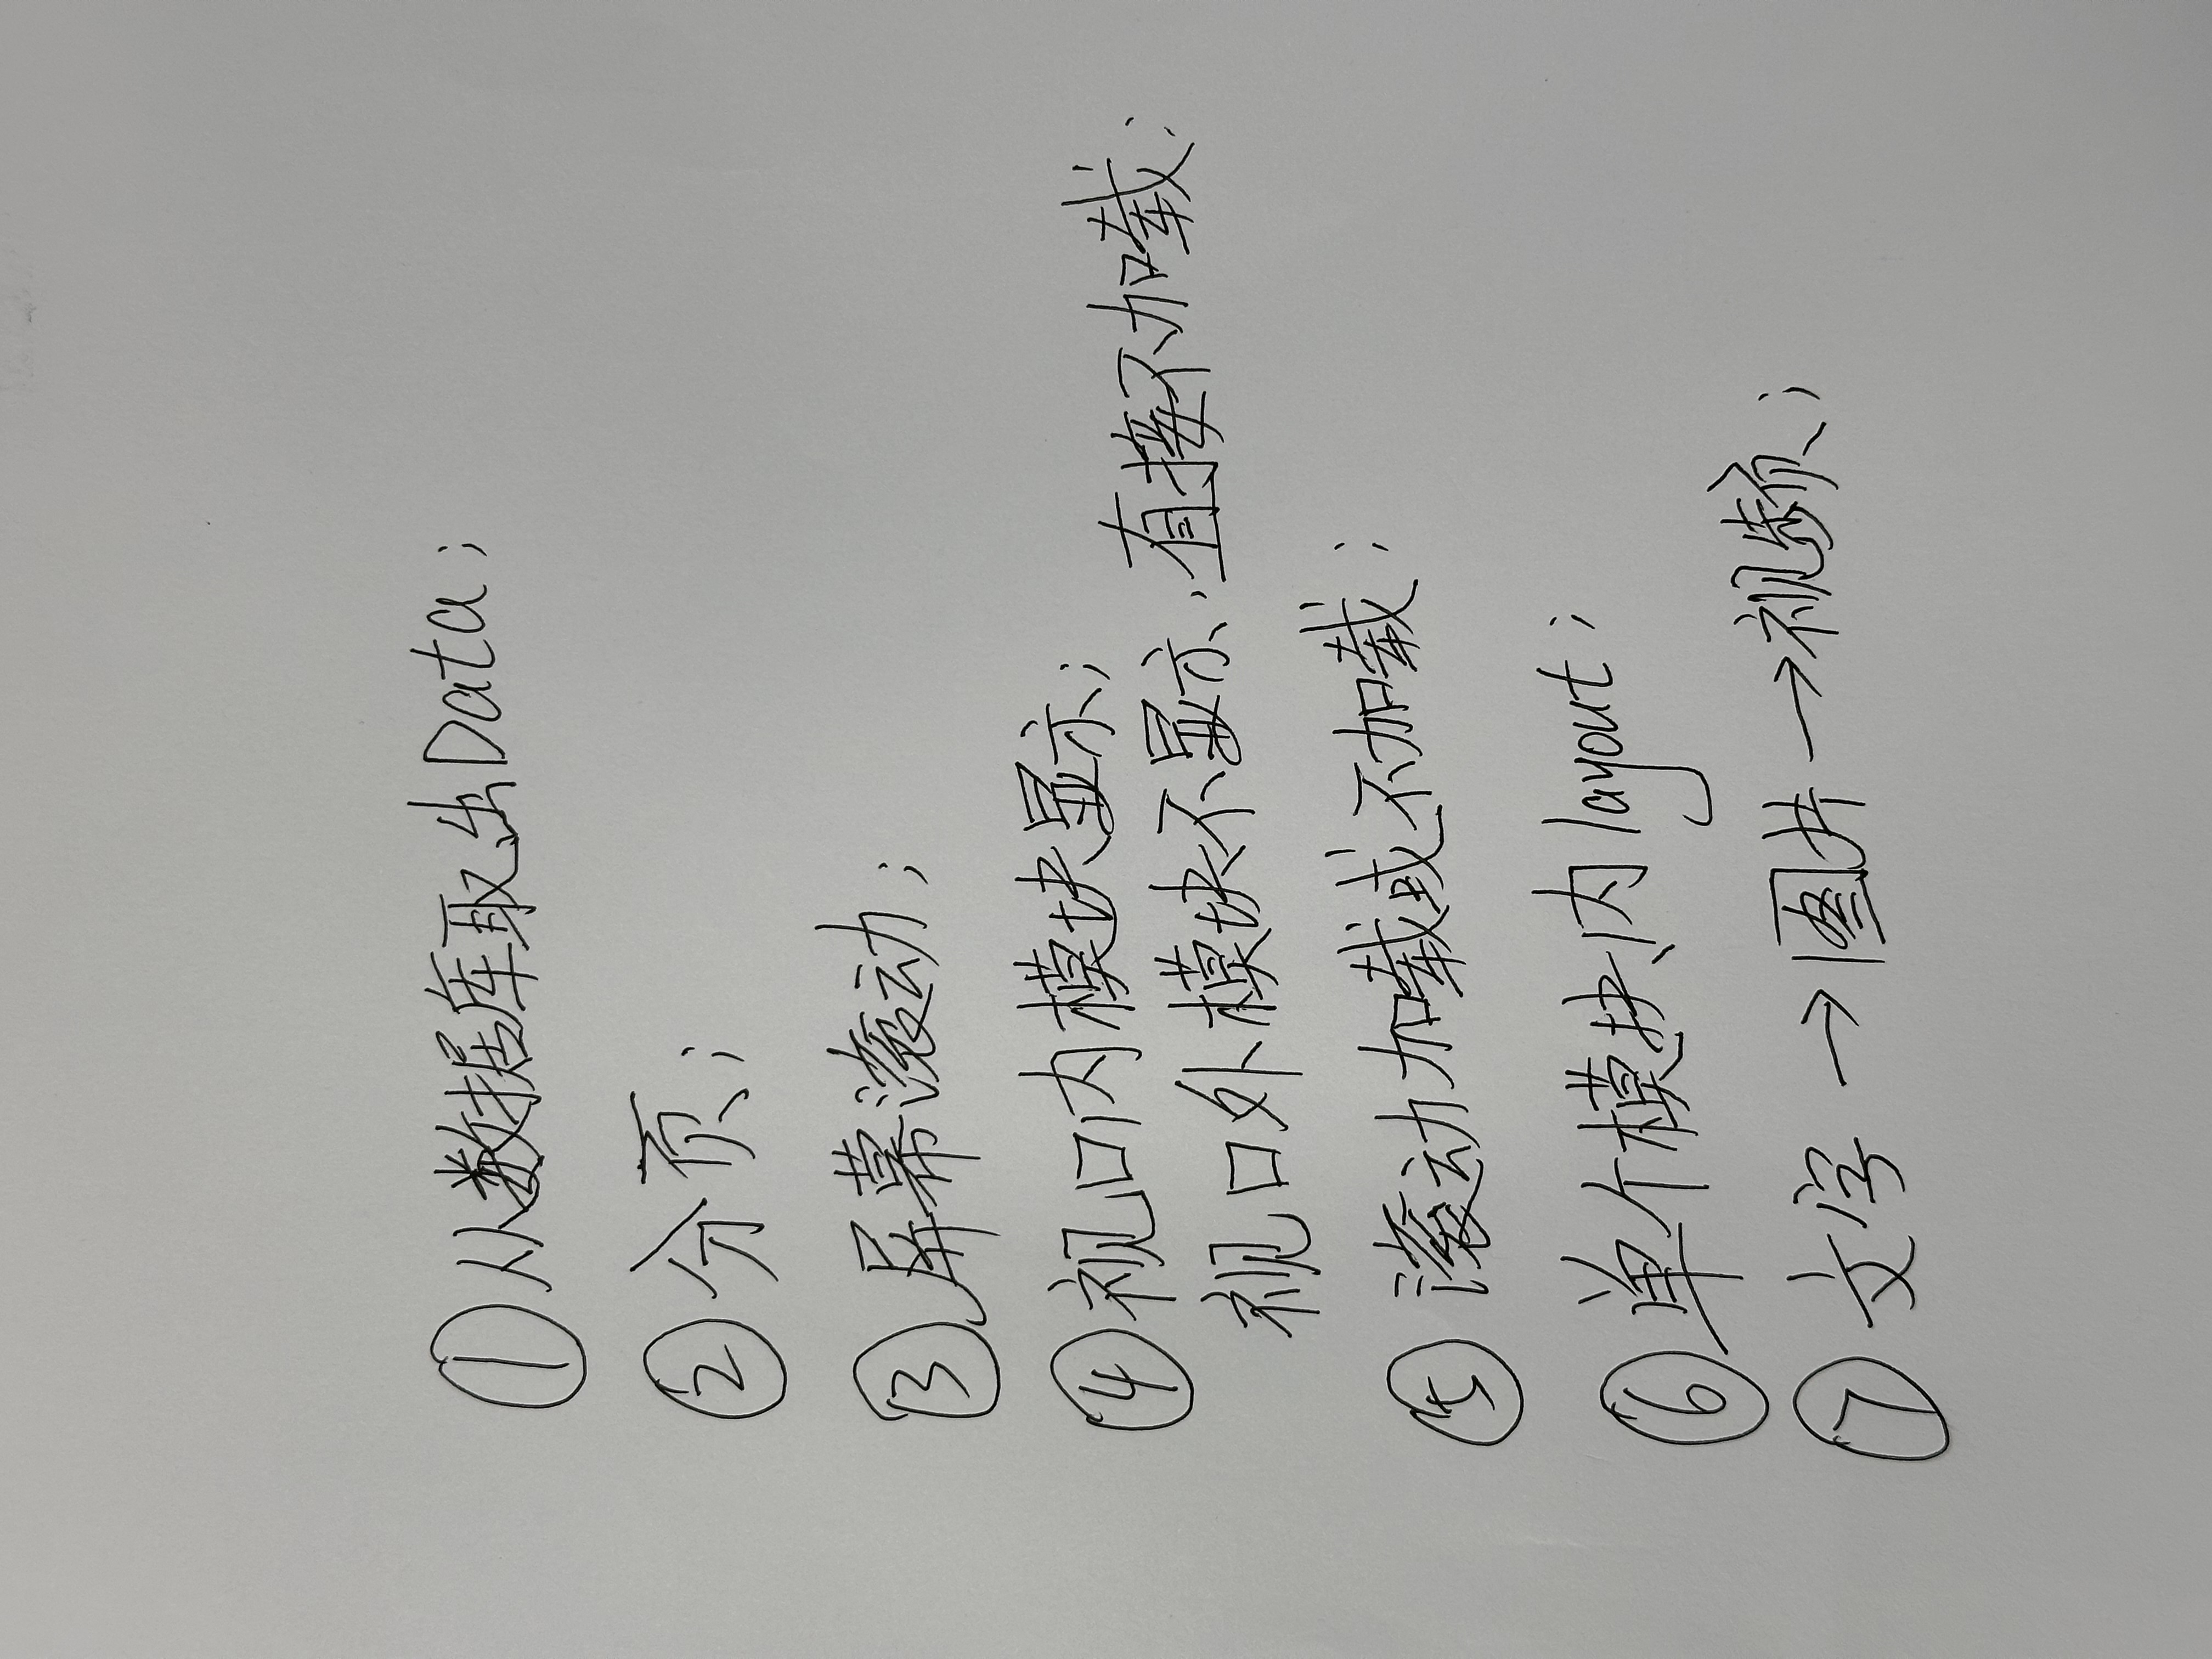 ①从数据库取出Data；
②分页；
③屏幕滚动；
④视口内模块显示；
视口外模块不显示，直接不加载；
⑤滚动加载或不加载；
⑥单个模块内layout；
⑦文字→图片→视频；